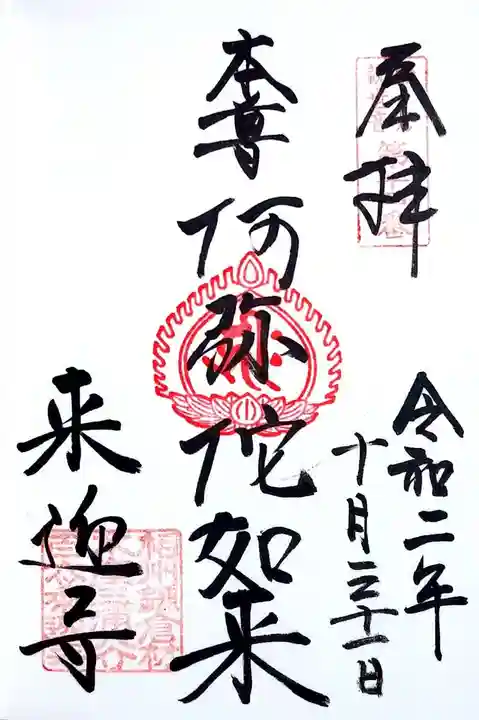 奉拝
令和二年
十月三十一日
本尊
阿弥陀如来
来迎寺